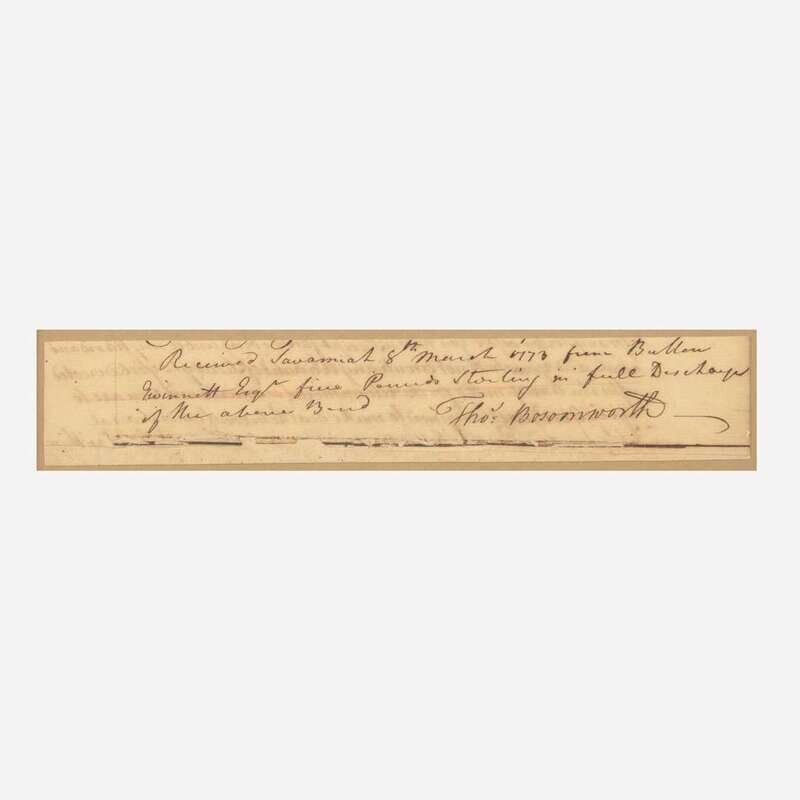 Received Savannah 8th March 1773 from Button
Gwinnett Esqr. five Pounds Sterling in full Discharge
of the above Bond Thos. Bosomworth